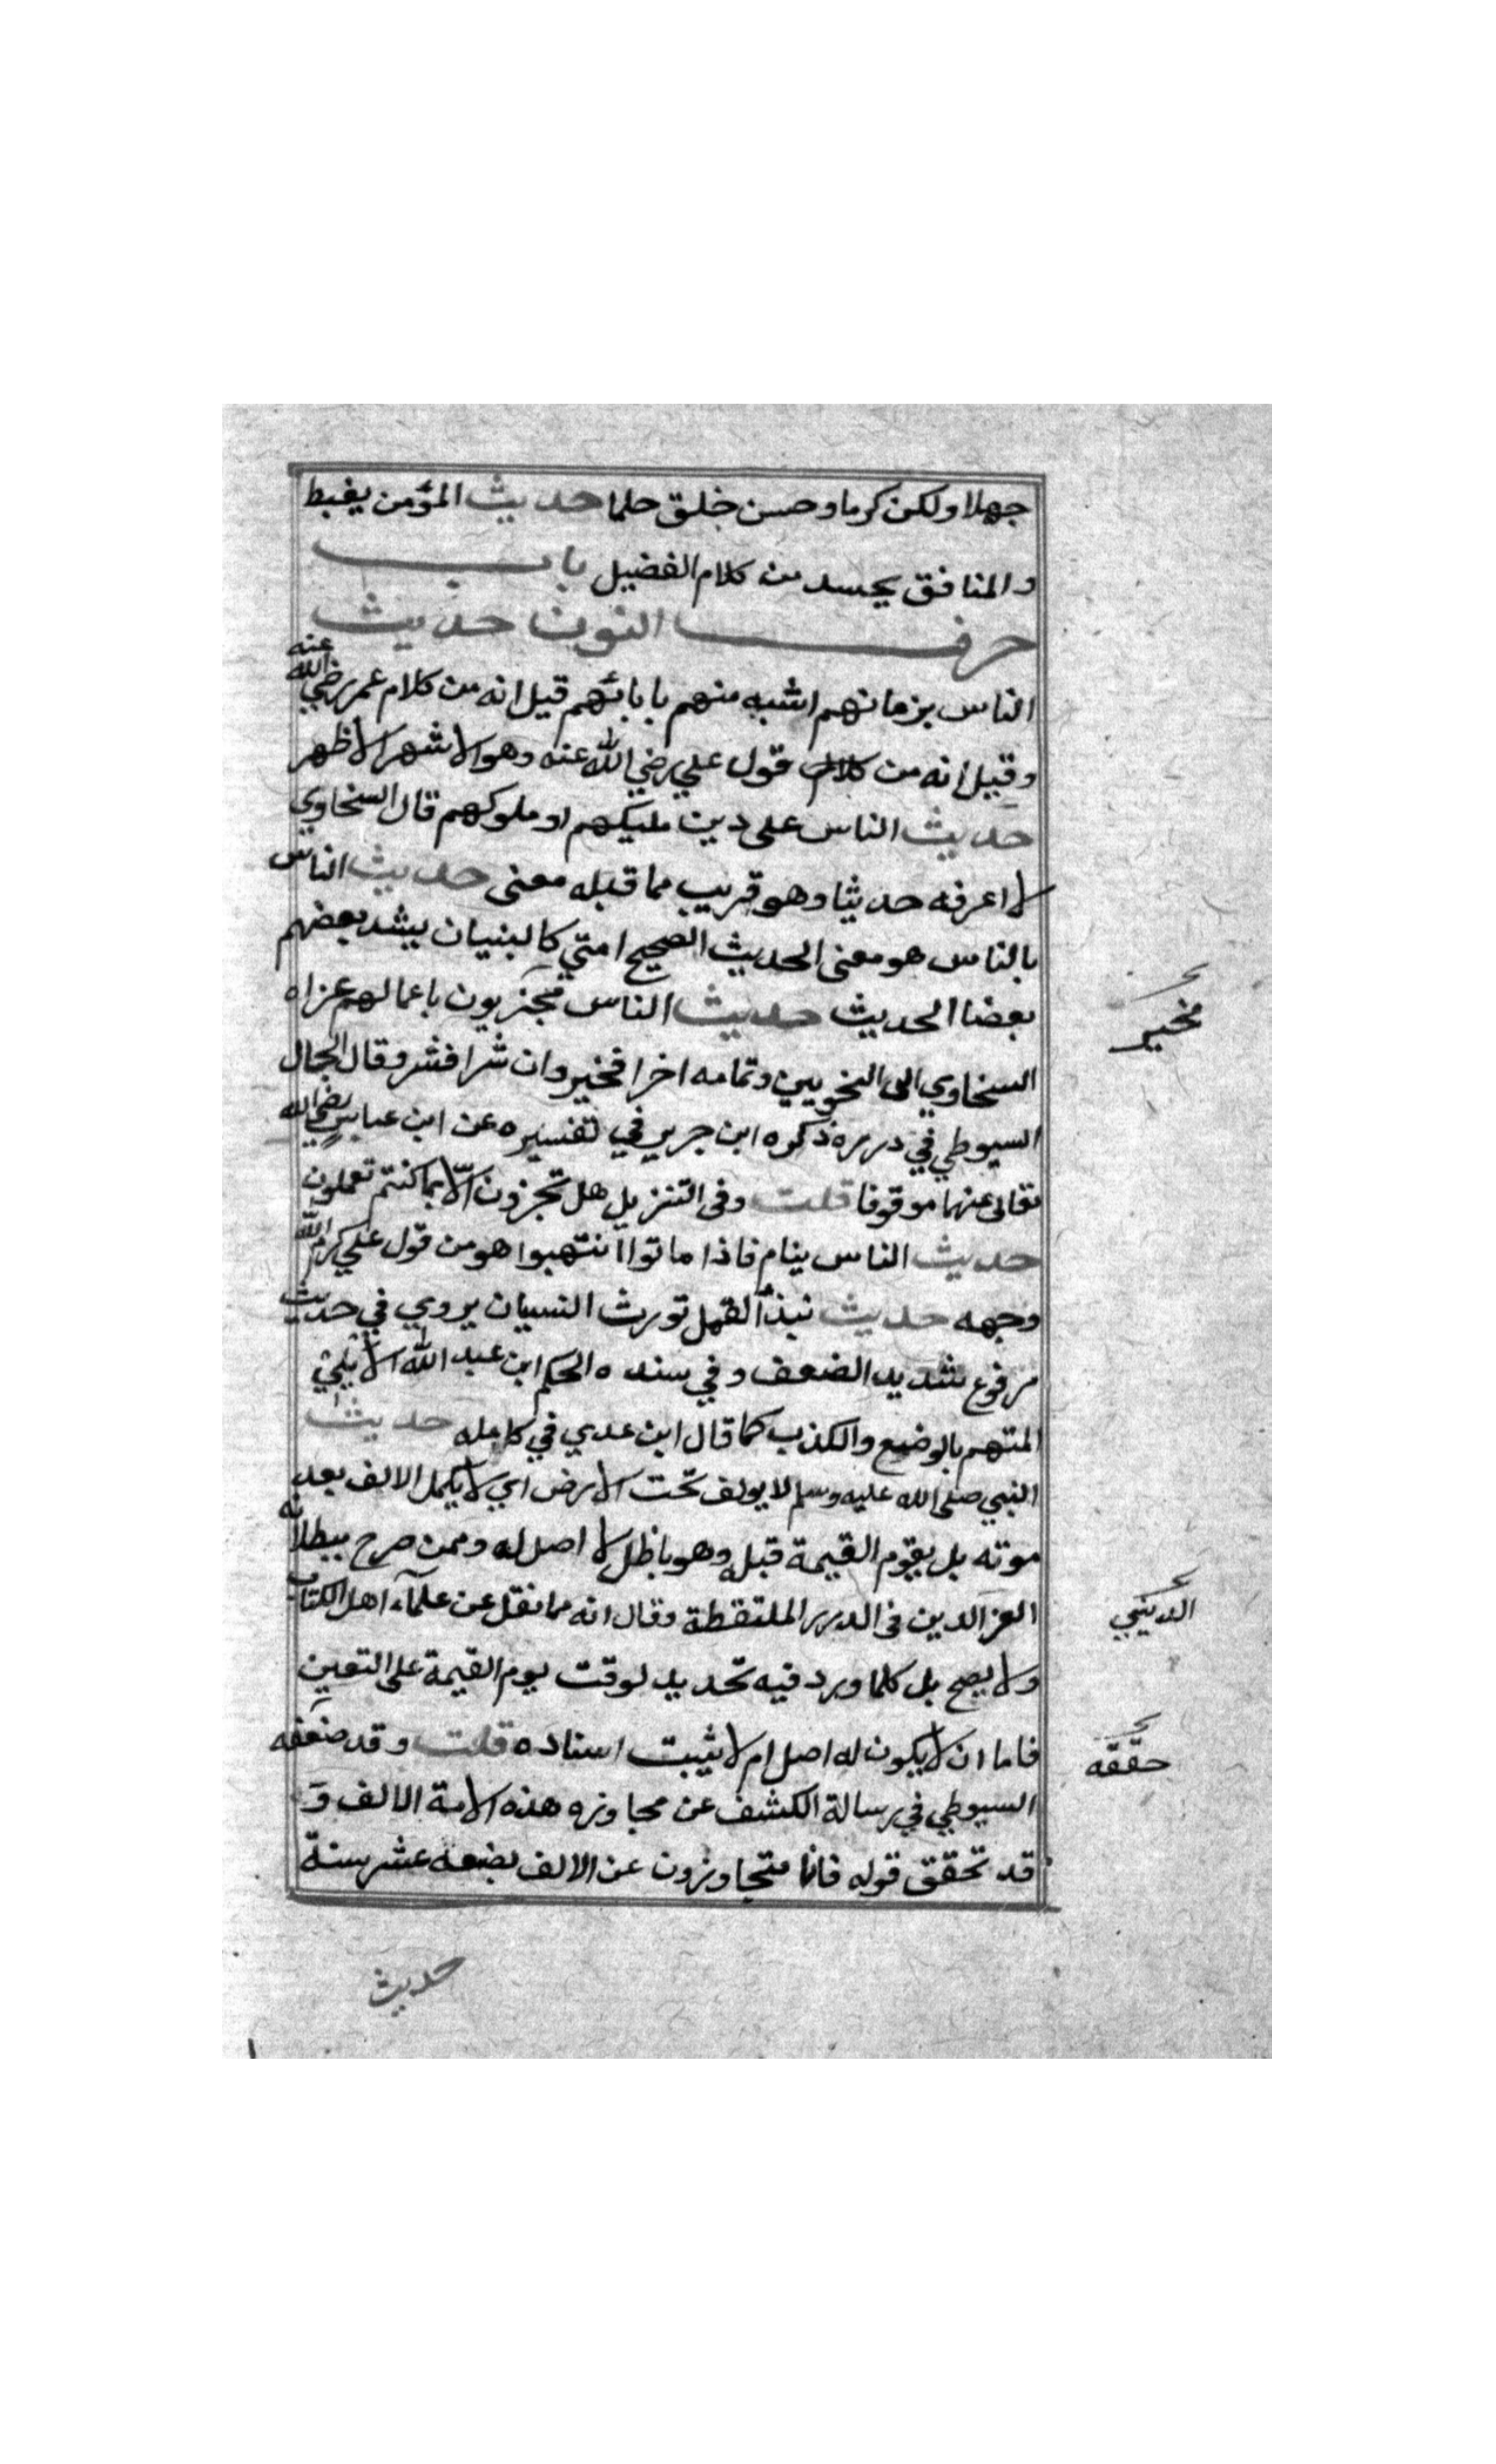 جهلا ولكن كرما وحسن خلق حلما حديث المؤمن يغبط
والمنافق يحسد من كلام الفضيل باب
حرف النون حديث
الناس بزمانهم اشبه منهم بابائهم قيل انه من كلام عمر رضي الله عنه
وقيل انه من كلام قول علي رضي الله عنه وهو الاشهر الاظهر
حديث الناس على دين مليكهم او ملوكهم قال السخاوي
لا اعرفه حديثا وهو قريب مما قبله معنى حديث الناس
بالناس هو معنى الحديث الصحيح امتي كالبنيان يشد بعضهم
بعضا الحديث حديث الناس مجزيون باعمالهم عزاه
السخاوي الى النحويين وتمامه اخرا فخير وان شرا فشر وقال الجلال
السيوطي في درره ذكره ابن جرير في تفسيره عن ابن عباس رضي الله
تعالى عنهما موقوفا قلت وفى التنزيل هل تجزون الا بما كنتم تعملون
حديث الناس ينام فاذا ماتوا انتهبوا هو من قول علي كرم الله
وجهه حديث نبذ القمل تورث النسيان يروي في حديث
مرفوع شديد الضعف وفي سنده الحكم ابن عبد الله الايلي
المتهم بالوضع والكذب كما قال ابن عدي في كامله حديث
النبي صلى الله عليه وسلم لا يولف تحت الارض اي لا يكمل الالف بعد
موته بل يقوم القيمة قبله وهو باطل لا اصل له وممن صرح ببطلانه
العز الدين فى الدرر الملتقطة وقال انه مما نقل عن علماء اهل الكتاب
ولا يصح بل كلما ورد فيه تحديد لوقت يوم القيمة على التعين
فاما ان لا يكون له اصل ام لا يثبت اسناده قلت وقد ضعفه
السيوطي في رسالة الكشف عن مجاوزه هذه الامة الالف و
قد تحقق قوله فانا متجاوزون عن الالف بضعة عشر سنة
حديث
فخير
الديني
حققه